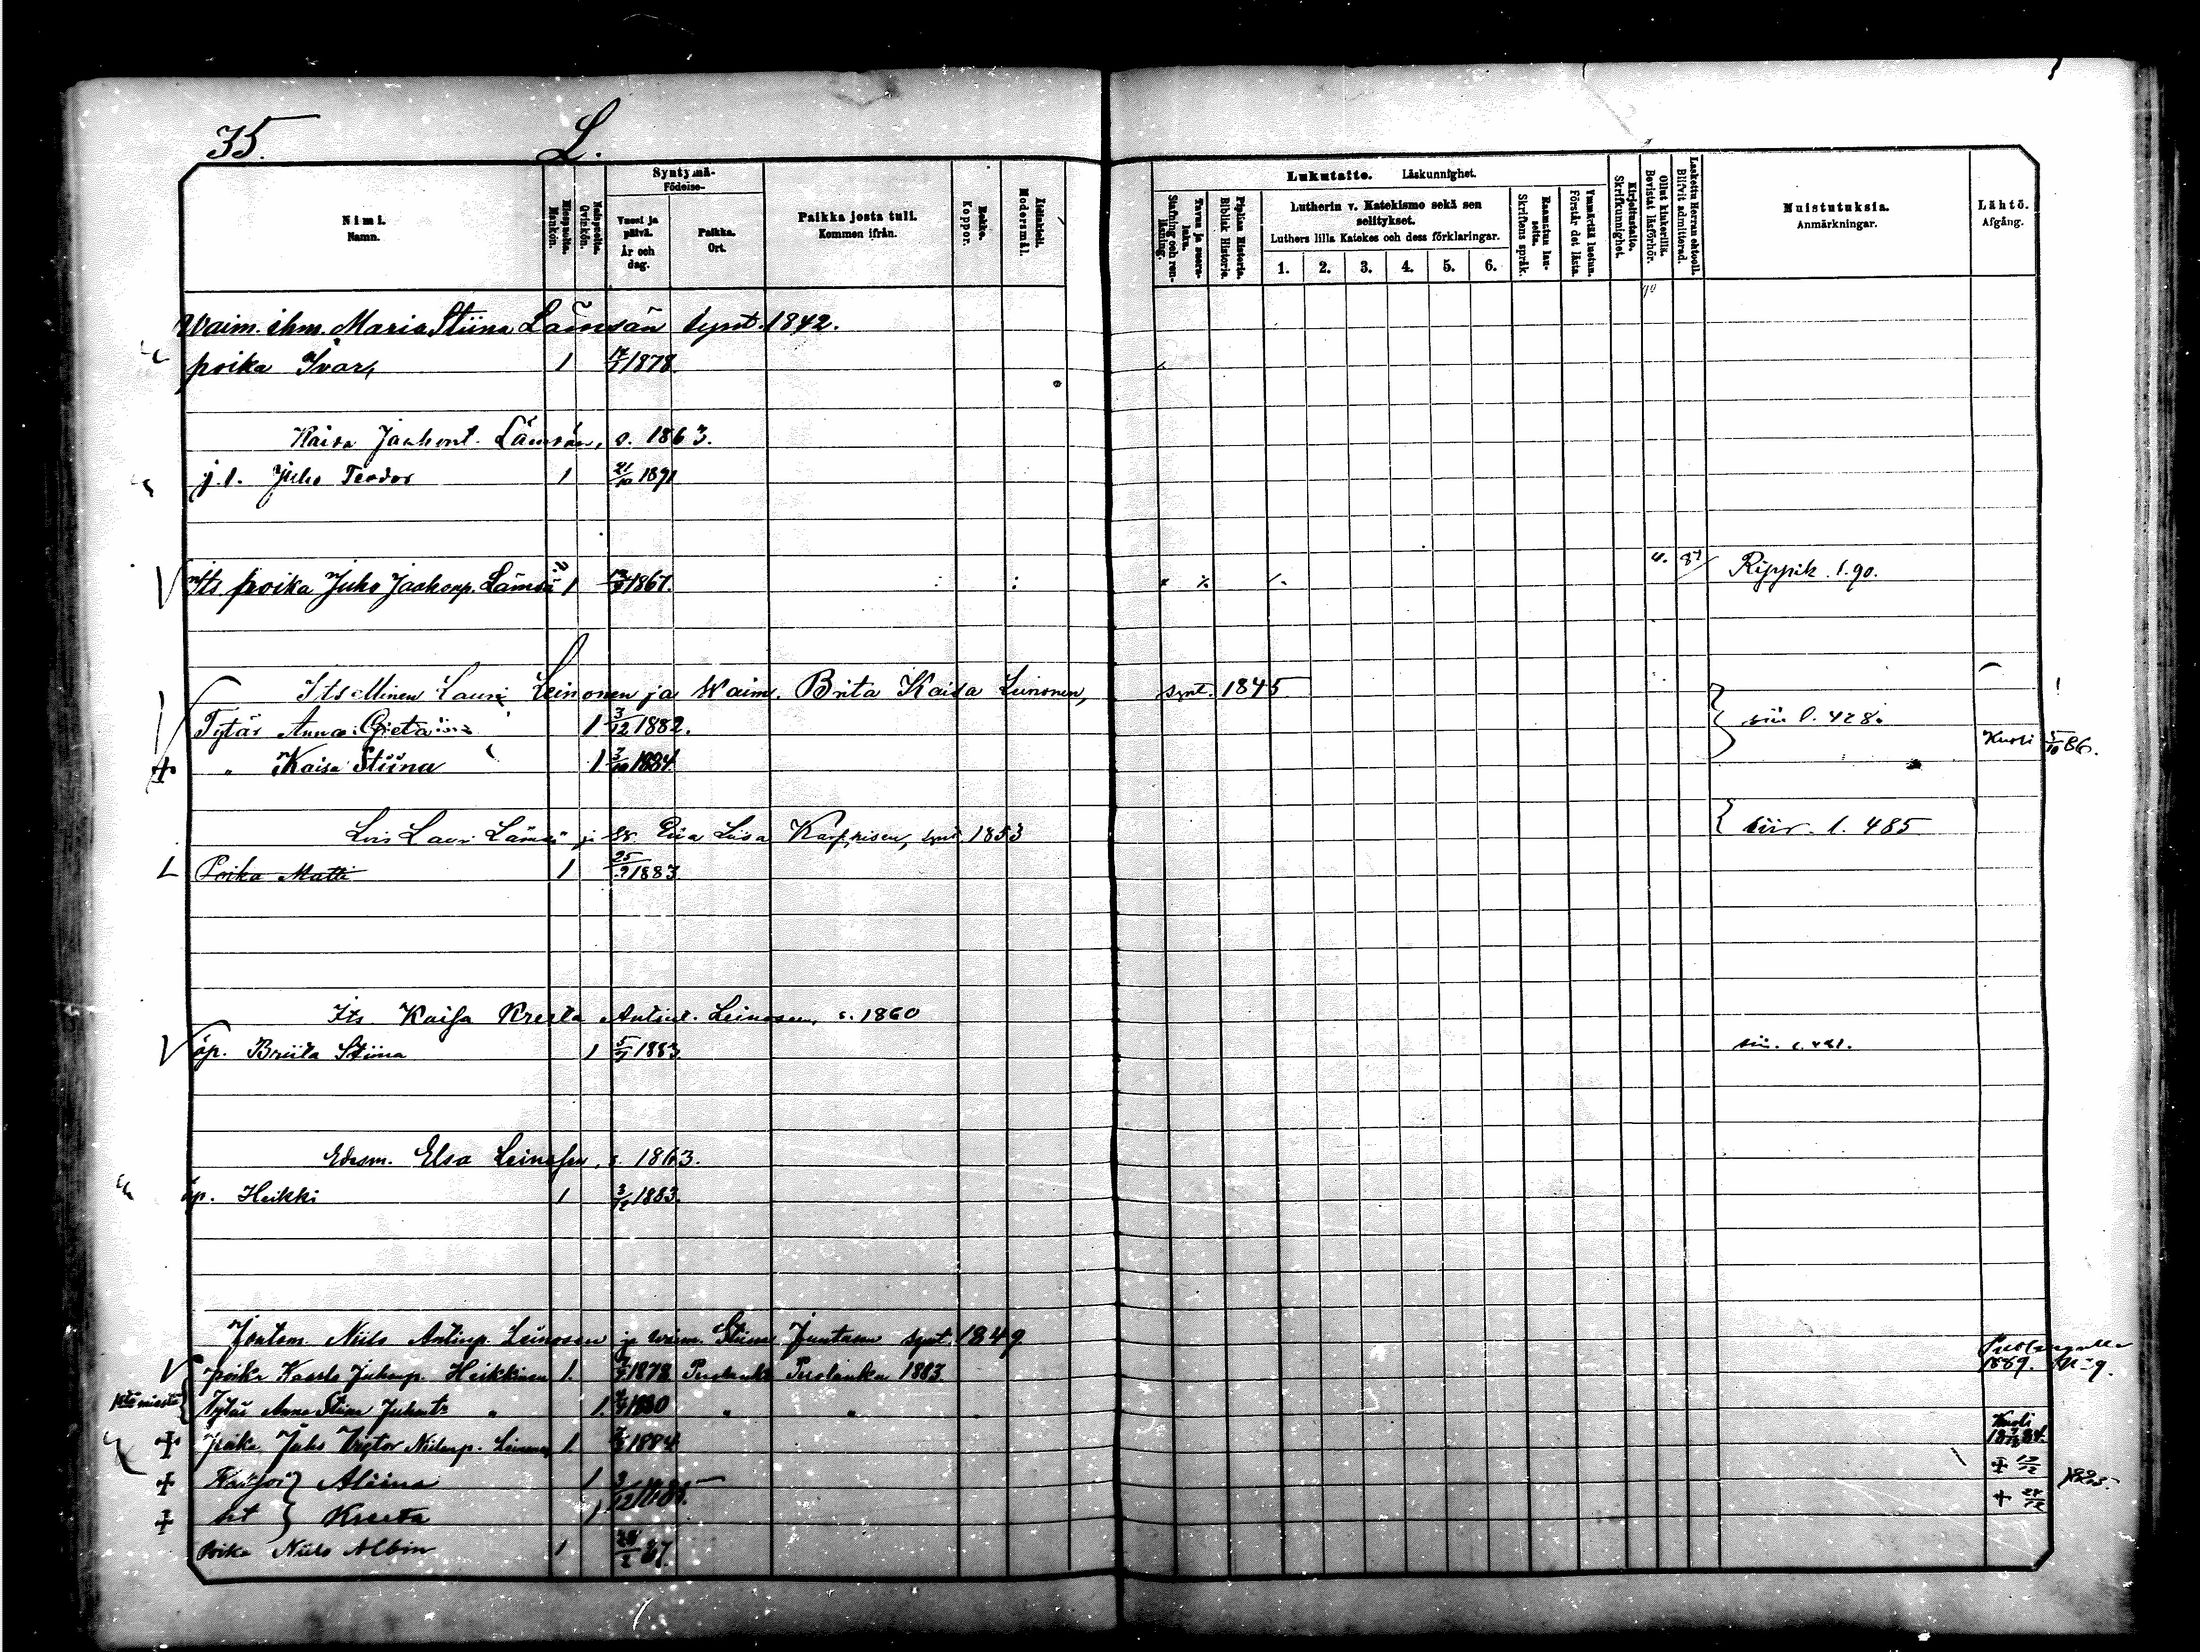 35. L.
Nimi. Namn.
Miespuolta. Mankön.
Naispuolta. Qvinkön.
Syntymä- Födelse-
Vuosi ja päivä. År och dag.
Paikka. Ort.
Paikka josta tuli. Kommen ifrån.
Rokko. Koppor.
Äidinkieli. Modersmål.
Lukutaito. Läskunnighet.
Tavau ja suora- luku. Stafning och ren- läsning.
Piplian Historia. Biblisk Historie.
Lutherin v. Katekismo sekä sen selitykset.
Luthers lilla Katekes och dess förklaringar.
1. 2. 3. 4. 5. 6.
Raamatun lau- seita. Skriftens språk.
Ymmärtää luetun. Förstår det lästa.
Kirjoitustaito. Skrifkunnighet.
Ollut kinkerillä. Bevistat läsförhör.
Laskettu Herran ehtooll. Blifvit admitterad.
Muistutuksia. Anmärkningar.
Lähtö. Afgång.
Waim. ihm. Maria Stiina Lämsän synt. 1842.
poika Ivar 1 1878
Kaisa Jaakont. Lämsän, s. 1863.
j.l. Juho Teodor 1 21/10 1891
its. poika Juho Jaakonp. Lämsä 1 1867. 87 Rippik. l. 90.
Itsellinen Lauri Leinonen ja Waim. Brita Kaisa Leinonen, synt. 1845
Tytär Anna Greta 1 3/12 1882. siir. l. 428.
" Kaisa Stiina 1 3/10 1884 Kuoli 5/10 86.
Lois Lauri Lämsä ja W. Eeva Liisa Karppinen, synt. 1853 siir. l. 485
Poika Matti 1 25/9 1883
Its. Kaisa Kreeta Antint. Leinosen, s. 1860
äp. Briita Stiina 1 1883
Edesm. Elsa Leinosen, s. 1863.
äp. Heikki 1 3/12 1883.
Niilo Antinp. Leinosen ja waim. Stiina Juntunen synt. 1849
poika Kaarlo Juhonp. Heikkinen 1. 1878 Puolanka Puolanka 1883 Puolangalle 1889. N:9.
Tytär Anna Stiina Juhont. " 1. 1880 " "
Poika Juho Victor Niilonp. Leinonen 1 1884 Kuoli
Kaksoi} Aliina 1 3/12 1885. + 12/12
set } Kreeta 1 + 28/12 1885.
Poika Niilo Albin 1 28/2 87